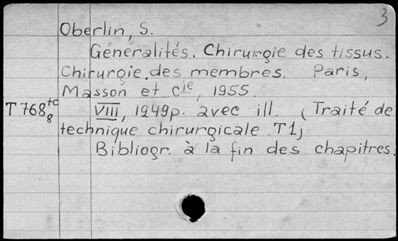 3
Oberlin, S.
Généralités. Chirurgie des tissus.
Chirurgie des membres. Paris,
Masson et Cie, 1955.
T 768tc8 VIII, 1249p. avec ill. (Traité de
technique chirurgicale T1)
Bibliogr. à la fin des chapitres.